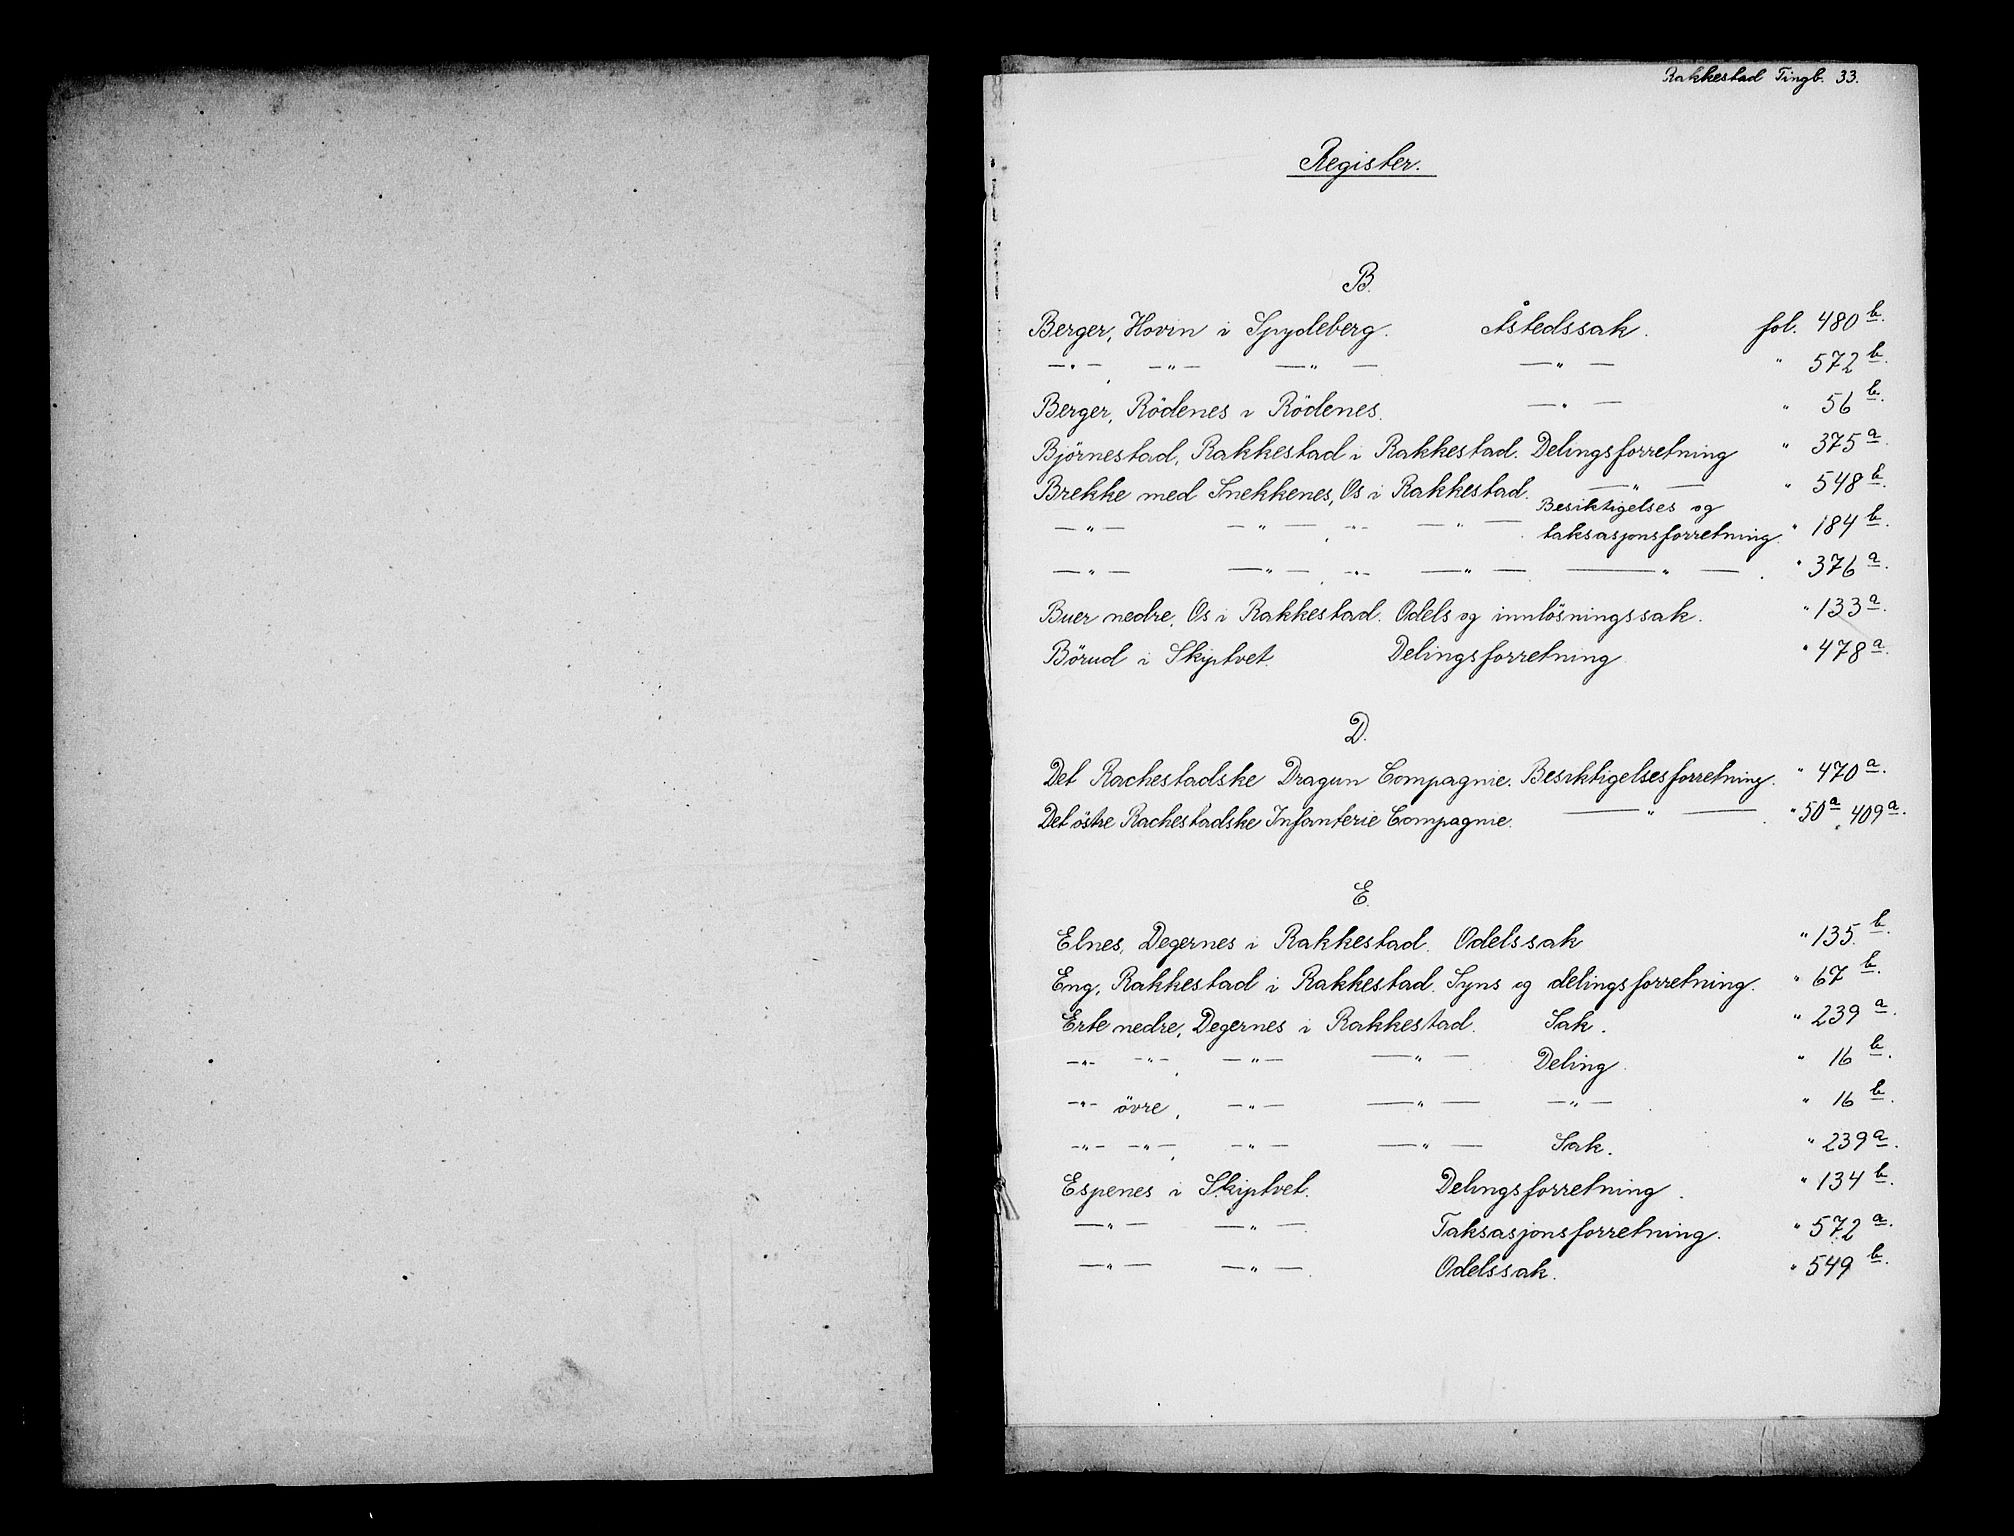 Rakkestad Tingb. 33.
Register.
B.
Berger, Hovin i Spydeberg. Åstedssak. fol. 480 b.
—"— , —"— —"— —"— " 572 b.
Berger, Rödenes i Rödenes. —"— " 56 b.
Björnestad, Rakkestad i Rakkestad. Delingsforretning " 375 a.
Brekke med Snekkenes, Os i Rakkestad. —"— " 548 b.
—"— —"— , -"- —"— . Besiktigelses og taksasjonsforretning. " 184 b.
—"— —"— , -"- —"— . —"— . " 376 a.
Buer nedre, Os i Rakkestad. Odels og innlösningssak. " 133 a.
Börud i Skiptvet. Delingsforretning. " 478 a.
D.
Det Rachestadske Dragun Compagnie. Besiktigelsesforretning. " 470 a.
Det östre Rachestadske Infanterie Compagnie. —"— . " 50 a, 409 a.
E.
Elnes, Degernes i Rakkestad. Odelssak " 135 b.
Eng, Rakkestad i Rakkestad. Syns og delingsforretning. " 67 b.
Erte nedre, Degernes i Rakkestad. Sak. " 239 a.
-"- -"- , —"— —"— . Deling. " 16 b.
-"- övre, —"— —"— —"— . " 16 b.
-"- -"- , —"— —"— Sak. " 239 a.
Espenes i Skiptvet. Delingsforretning. " 134 b.
—"— —"— . Taksasjonsforretning. " 572 a.
—"— —"— . Odelssak. " 549 b.